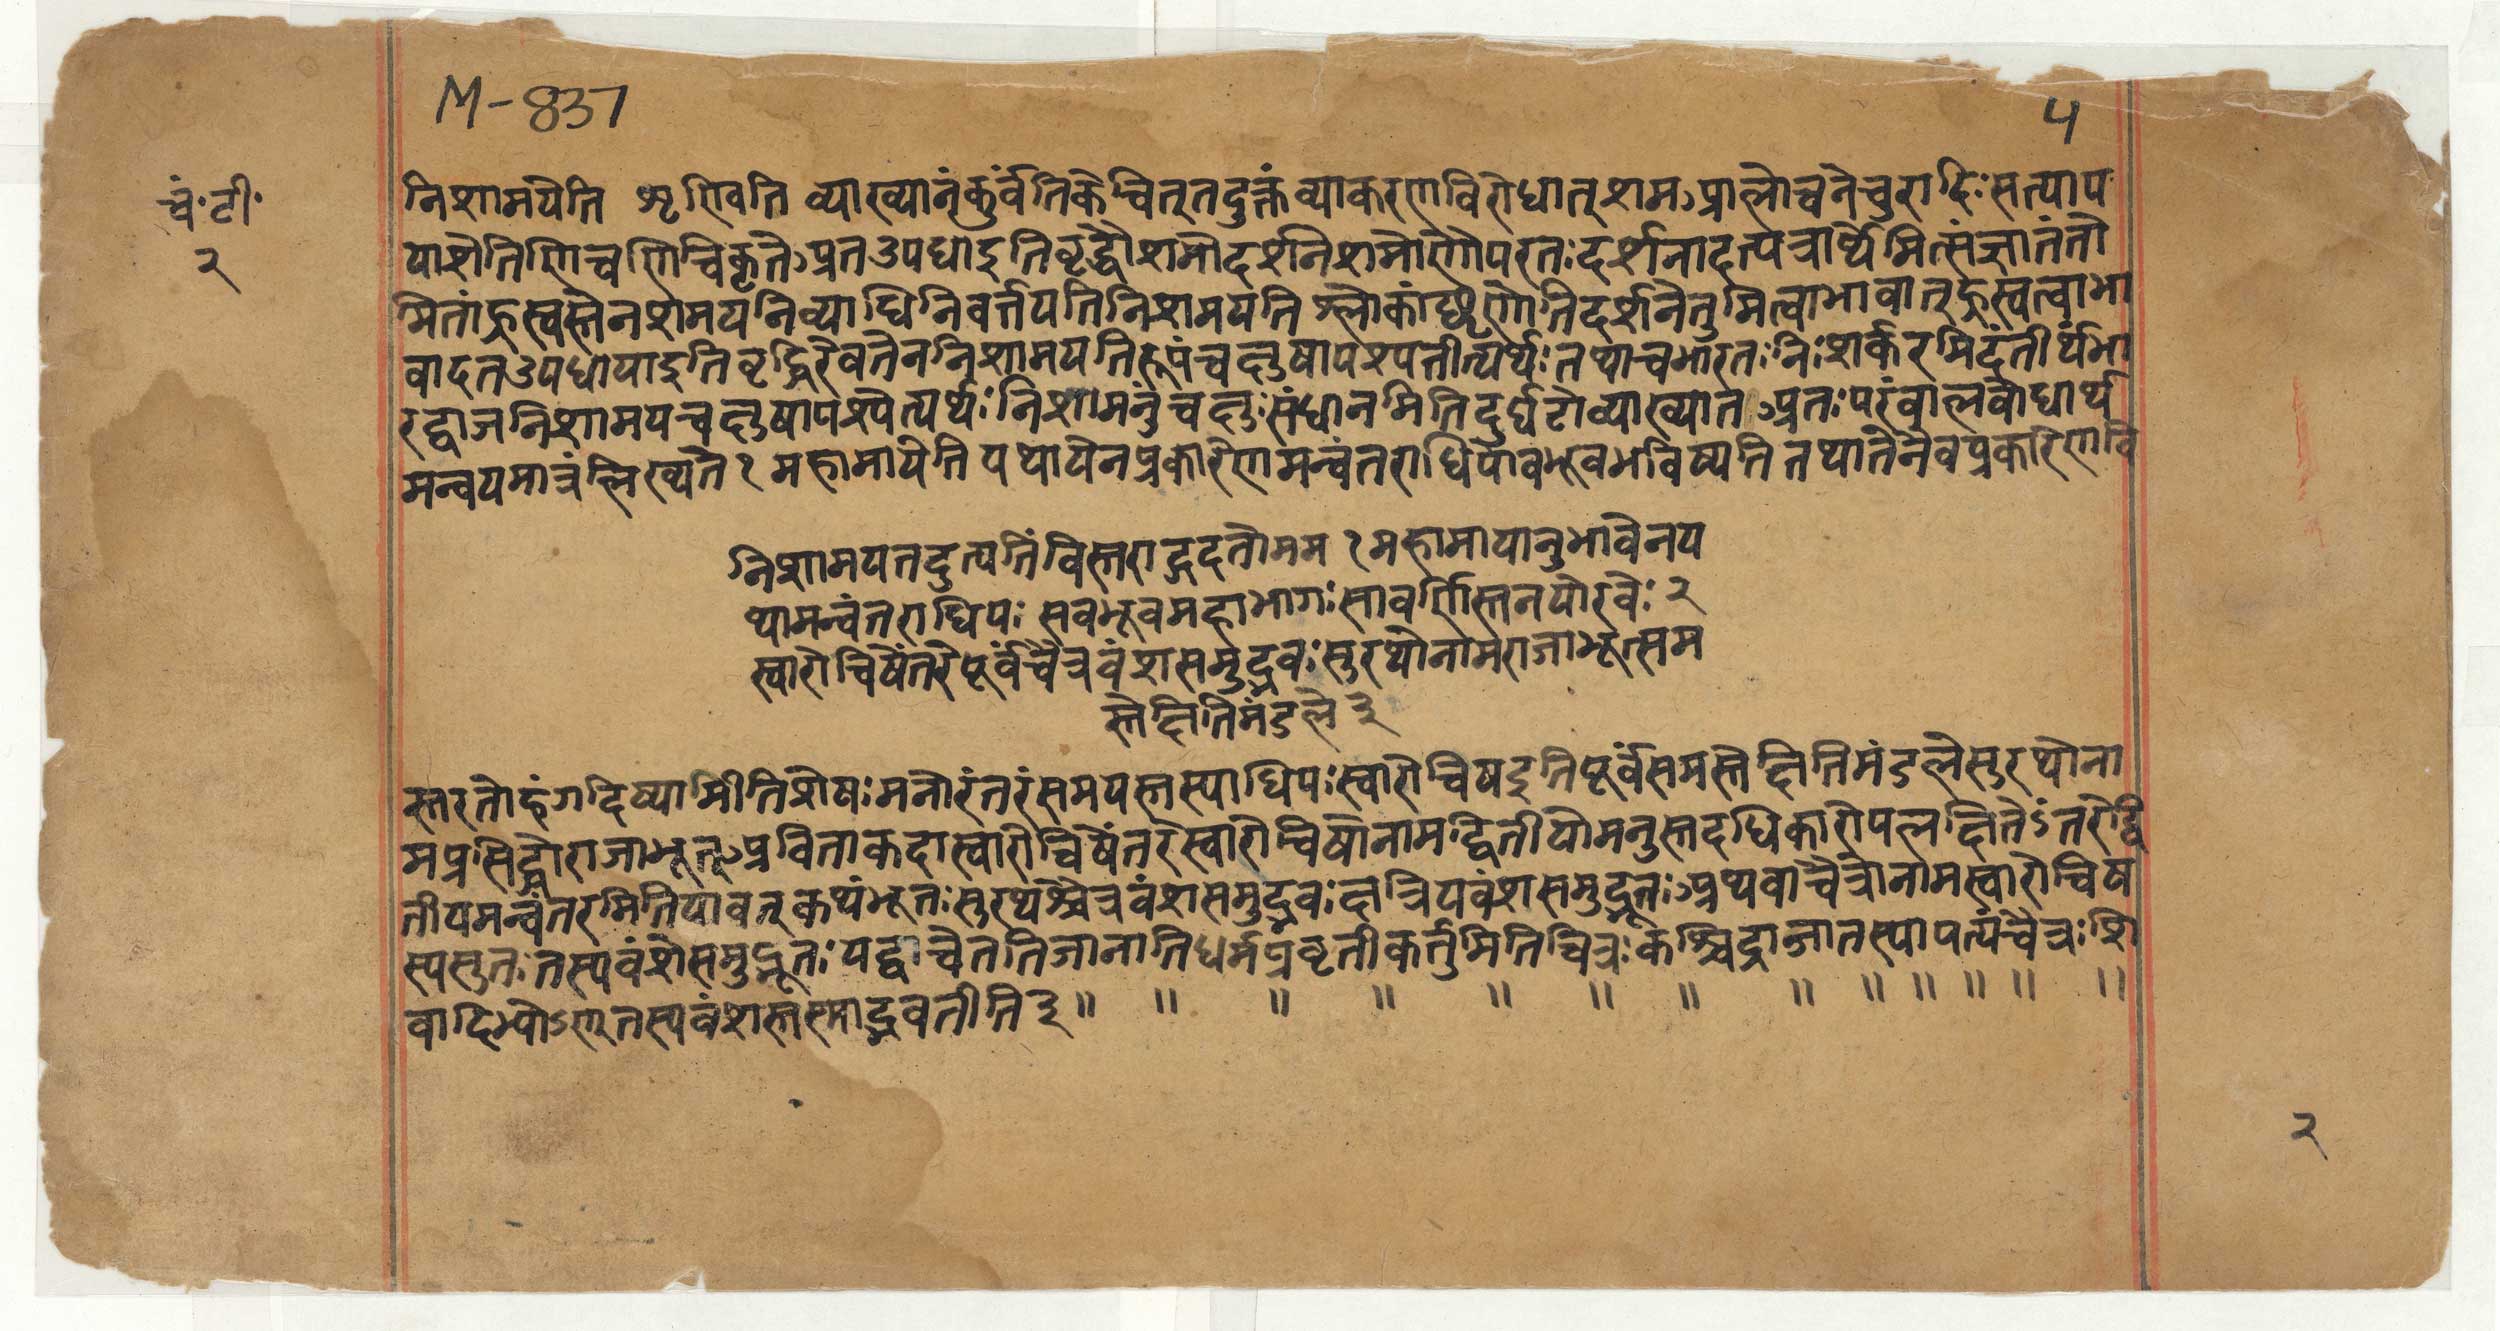 M-837
५
चं॰टी॰
२
निशामयेति शृण्विति व्याख्यानंकुर्वंतिकेचित्तदुक्तंव्याकरणविरोधात्शमअालोचनेचुरादिःसत्याप
पाशेतिणिच्णिचिकृतेअतउपधाइतिवृद्धौशमोदर्शनेशमोणौपरतःदर्शनादन्यत्रार्थेमित्संज्ञातंतो
मितांह्रस्वस्तेनशमयतिव्याधिंनिवर्त्तयतिनिशमयति श्लोकांछृणोतिदर्शनेतुमित्वाभावात्ह्रस्वत्वाभा
वादतउपधायाइतिवृद्धिरेवतेननिशामयतिरूपंचक्षुषापश्यतीत्यर्थः तथाचभारतःनिःशर्करमिदंतीर्थंभा
रद्वाजनिशामयचक्षुषापश्येत्यर्थःनिशामनंचक्षुःसंधानमितिदुर्घटोव्याख्यातअतःपरंबालबोधार्थ
मन्वयमात्रंलिख्यते१ महामायेति यथायेनप्रकारेणमन्वंतराधिपोबभूवभविष्यति तथातेनैवप्रकारेणवि
निशामयतदुत्पत्तिंविस्तराद्गदतोमम १ महामायानुभावेनय
थामन्वंतराधिपः सबभूवमहाभागःसावर्णिस्तनयोरवेः२
स्वारोचिषेंतरेपूर्वंचैत्रवंशसमुद्भवःसुरथोनामराजाभूत्सम
स्तेक्षितिमंडले३
स्तरतोहंगदिष्यामीतिशेषःमनोरंतरंसमयस्तस्याधिपःस्वारोचिषइतिपूर्वंसमस्तेक्षितिमंडलेसुरथोना
मप्रसिद्धोराजाभूत्अविताकदास्वारोचिषेंतरेस्वारोचिषोनामद्वितीयोमनुस्तदधिकारोपलक्षितेऽंतरेद्वि
तीयमन्वंतरमितियावत्कथंभूतःसुरथश्चैत्रवंशसमुद्भवःक्षत्रियवंशसमुद्भूतःअथवाचैत्रोनामस्वारोचिष
स्यसुतःतस्यवंशेसमुद्भूतःयद्वाचेततिजानातिधर्मप्रवृतीकर्तुमितिचित्रःकश्चिद्राजातस्यापत्यंचैत्रःशि
वादिभ्योऽण्तस्यवंशस्तस्माद्भवतीति३॥ ॥ ॥ ॥ ॥ ॥ ॥ ॥ ॥ ॥ ॥ ॥ ॥
२